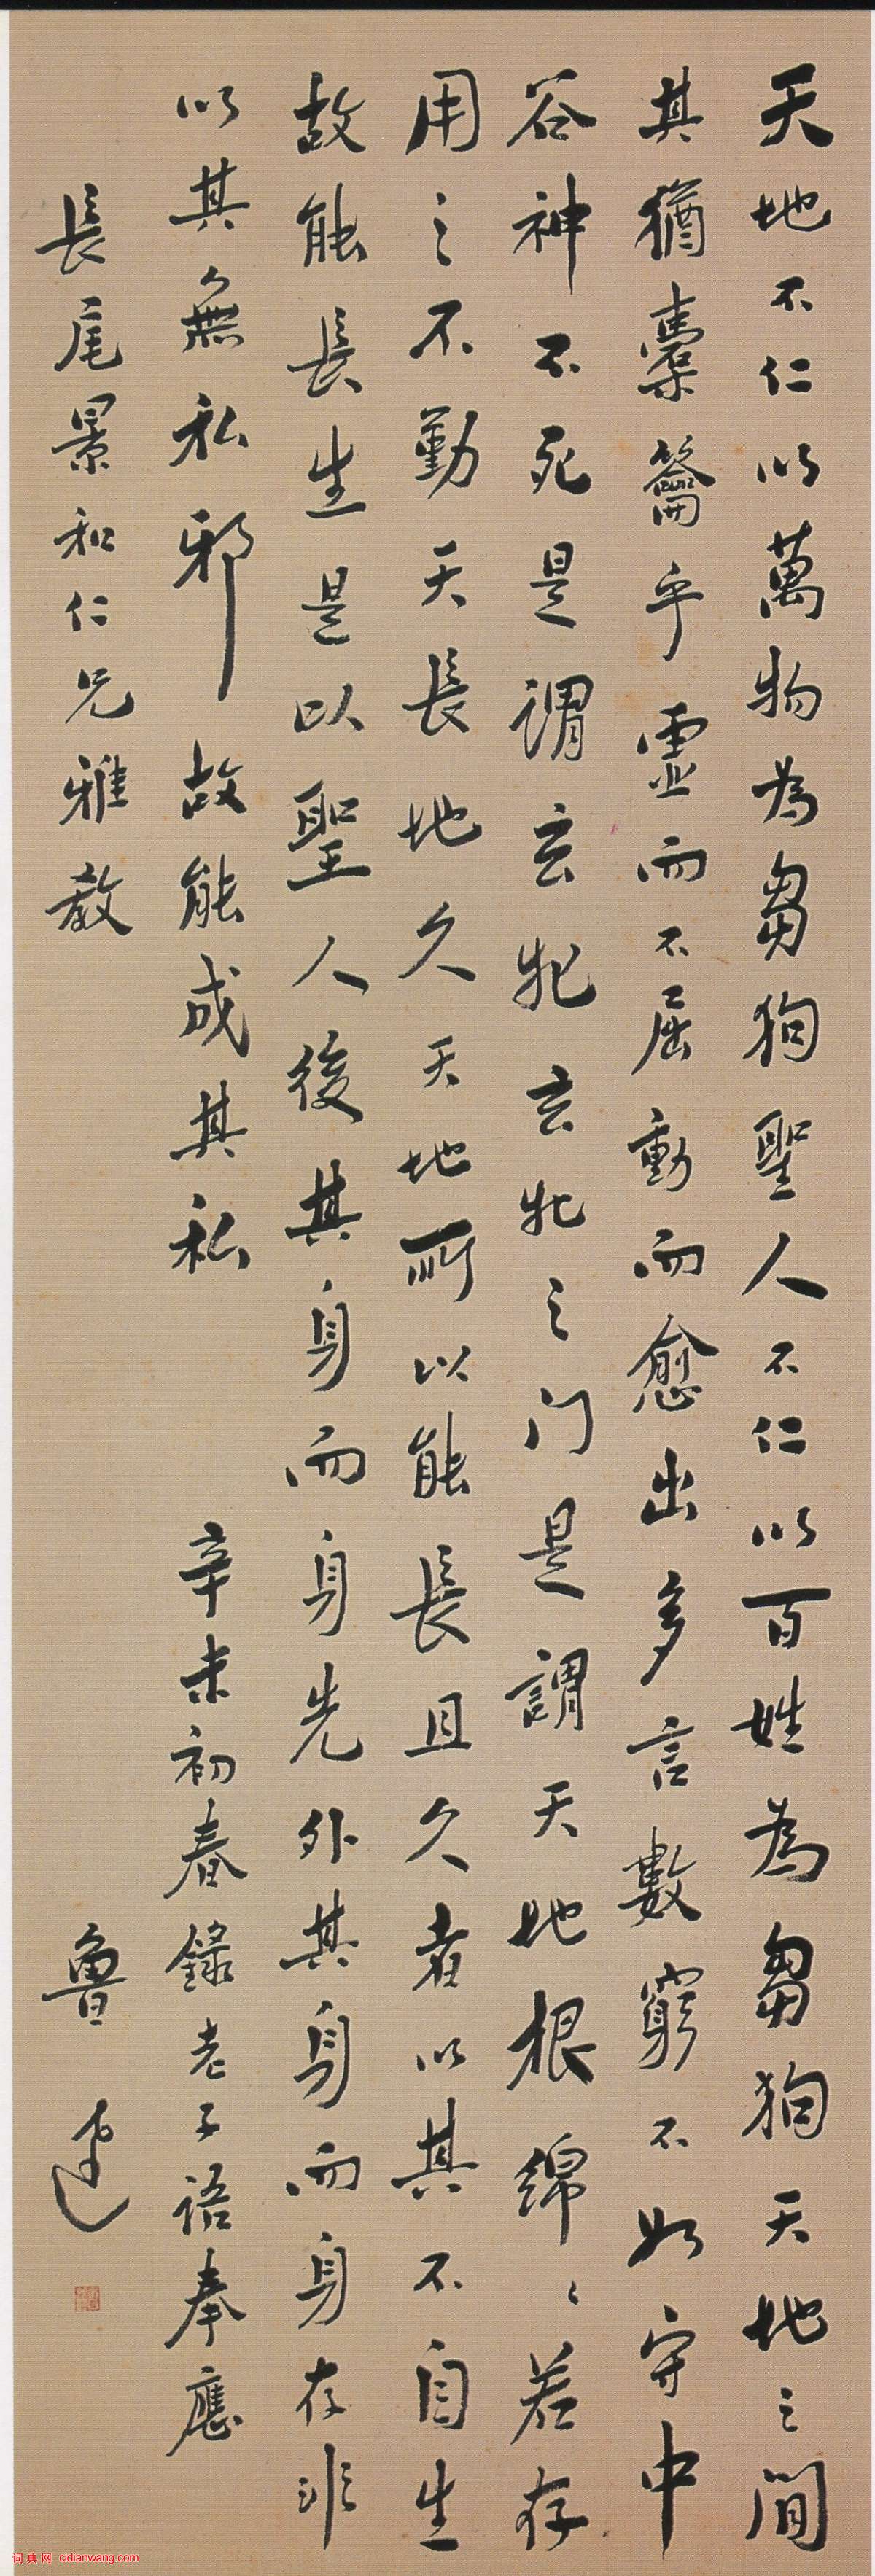 天地不仁以萬物為芻狗聖人不仁以百姓為芻狗天地之間
其猶橐籥乎虛而不屈動而愈出多言數窮不如守中
谷神不死是謂玄牝玄牝之门是謂天地根綿〻若存
用之不勤天長地久天地所以能長且久者以其不自生
故能長生是以聖人後其身而身先外其身而身存非
以其無私邪故能成其私 辛未初春錄老子語奉應
長尾景和仁兄雅教 魯迅
词典网 cidianwang.com